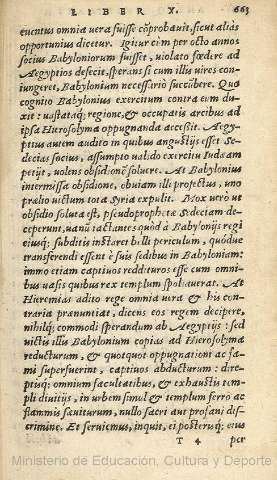 LIBER X. 663
euentus omnia vera fuisse cõprobauit, sicut aliàs
opportunius dicetur. Igitur cùm per octo annos
socius Babyloniorum fuisset, violato fœdere ad
Aegyptios defecit, sperans si cum illis vires con-
iungeret, Babylonium necessariò succũbere. Quo
cognitio Babylonius exercitum contra eum du-
xit: uastataq; regione, & occupatis arcibus ad
ipsa Hierosolyma oppugnanda accessit. Aegy-
ptius autem audito in quibus angustijs esset Se-
decias socius, assumpto valido exercitu Iudæam
petijt, volens obsidionẽ soluere. At Babylonius
intermissa obsidione, obuiam illi profectus, uno
prælio victum tota Syria expulit. Mox vero ut
obsidio soluta est, pseudoprophetæ Sedeciam de-
ceperunt, uanũ iactantes quòd à Babylonijs regi
eiusq; subditis instaret belli periculum, quódue
transferendi essent è suis sedibus in Babyloniam:
immo etiam captiuos reddituros esse cum omni-
bus uasis quibus rex templum spoliauerat. At
Hieremias adito rege omnia vera & his con-
traria prænuntiat, dicens eos regem decipere,
nihilq; commodi sperandum ab Aegyptijs: sed
victis illis Babylonium copias ad Hierosolyma
reducturum, & quotquot oppugnationi ac fa-
mi superfuerint, captiuos abducturum: dire-
ptisq; omnium facultatibus, & exhaustis tem-
pli diuitijs, in urbem simul & templum ferro ac
flammis sæuiturum, nullo sacri aut profani dis-
crimine. Et seruiemus, inquit, ei posterisq; eius
T 4 per
Ministerio de Educación, Cultura y Deporte